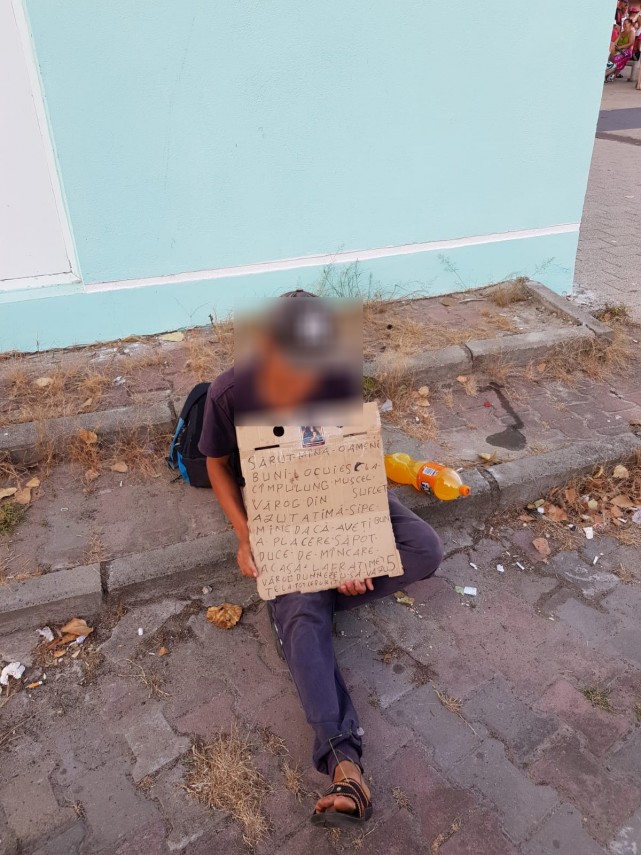 SARUTMINA OAMENI
BUNI LOCUIESC LA
CIMPULUNG MUSCEL
VĂROG DIN SUFLET
AZUTATIMĂ SIPE
MINE DACĂ AVETI BUN
A PLACERE SĂPOT
DUCE DE MINCARE
ACASA LA FRATIMEI 5
VĂROG DUMNEZEU